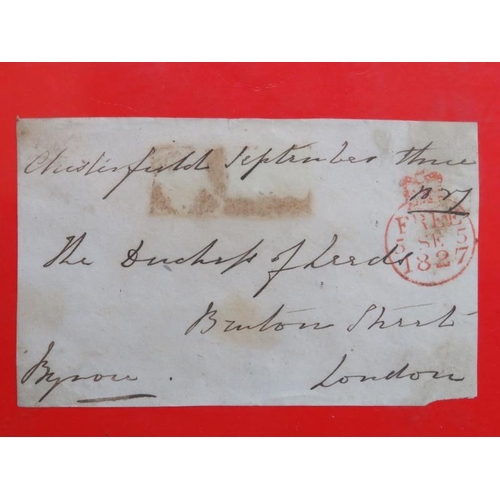 Chesterfield September three
1827
The Duchess of Leeds
Bruton Street
London
Byron.
FREE
5 SE 5
1827